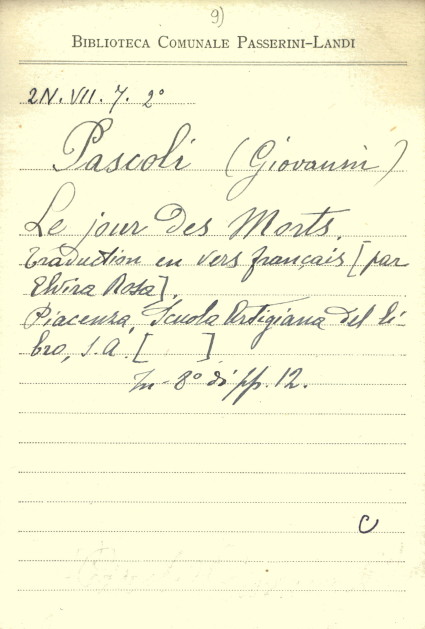 9)
BIBLIOTECA COMUNALE PASSERINI-LANDI
2N. VII. 7. 2º
Pascoli (Giovanni)
Le jour des Morts.
traduction en vers français [par
Elvira Rosa].
Piacenza, Scuola Artigiana del li-
bro, s.a. [ ].
In-8º di pp. 12.
C